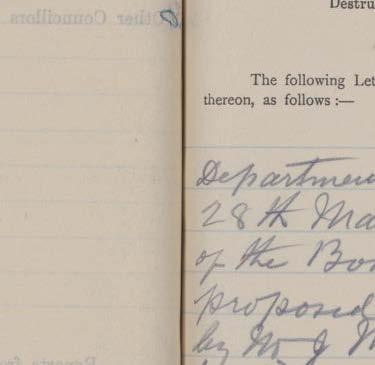 Other Councillors
Destru
The following Let
thereon, as follows :—
Departmen
28th Ma
of the Bo
proposed
by Mr J
Reports from